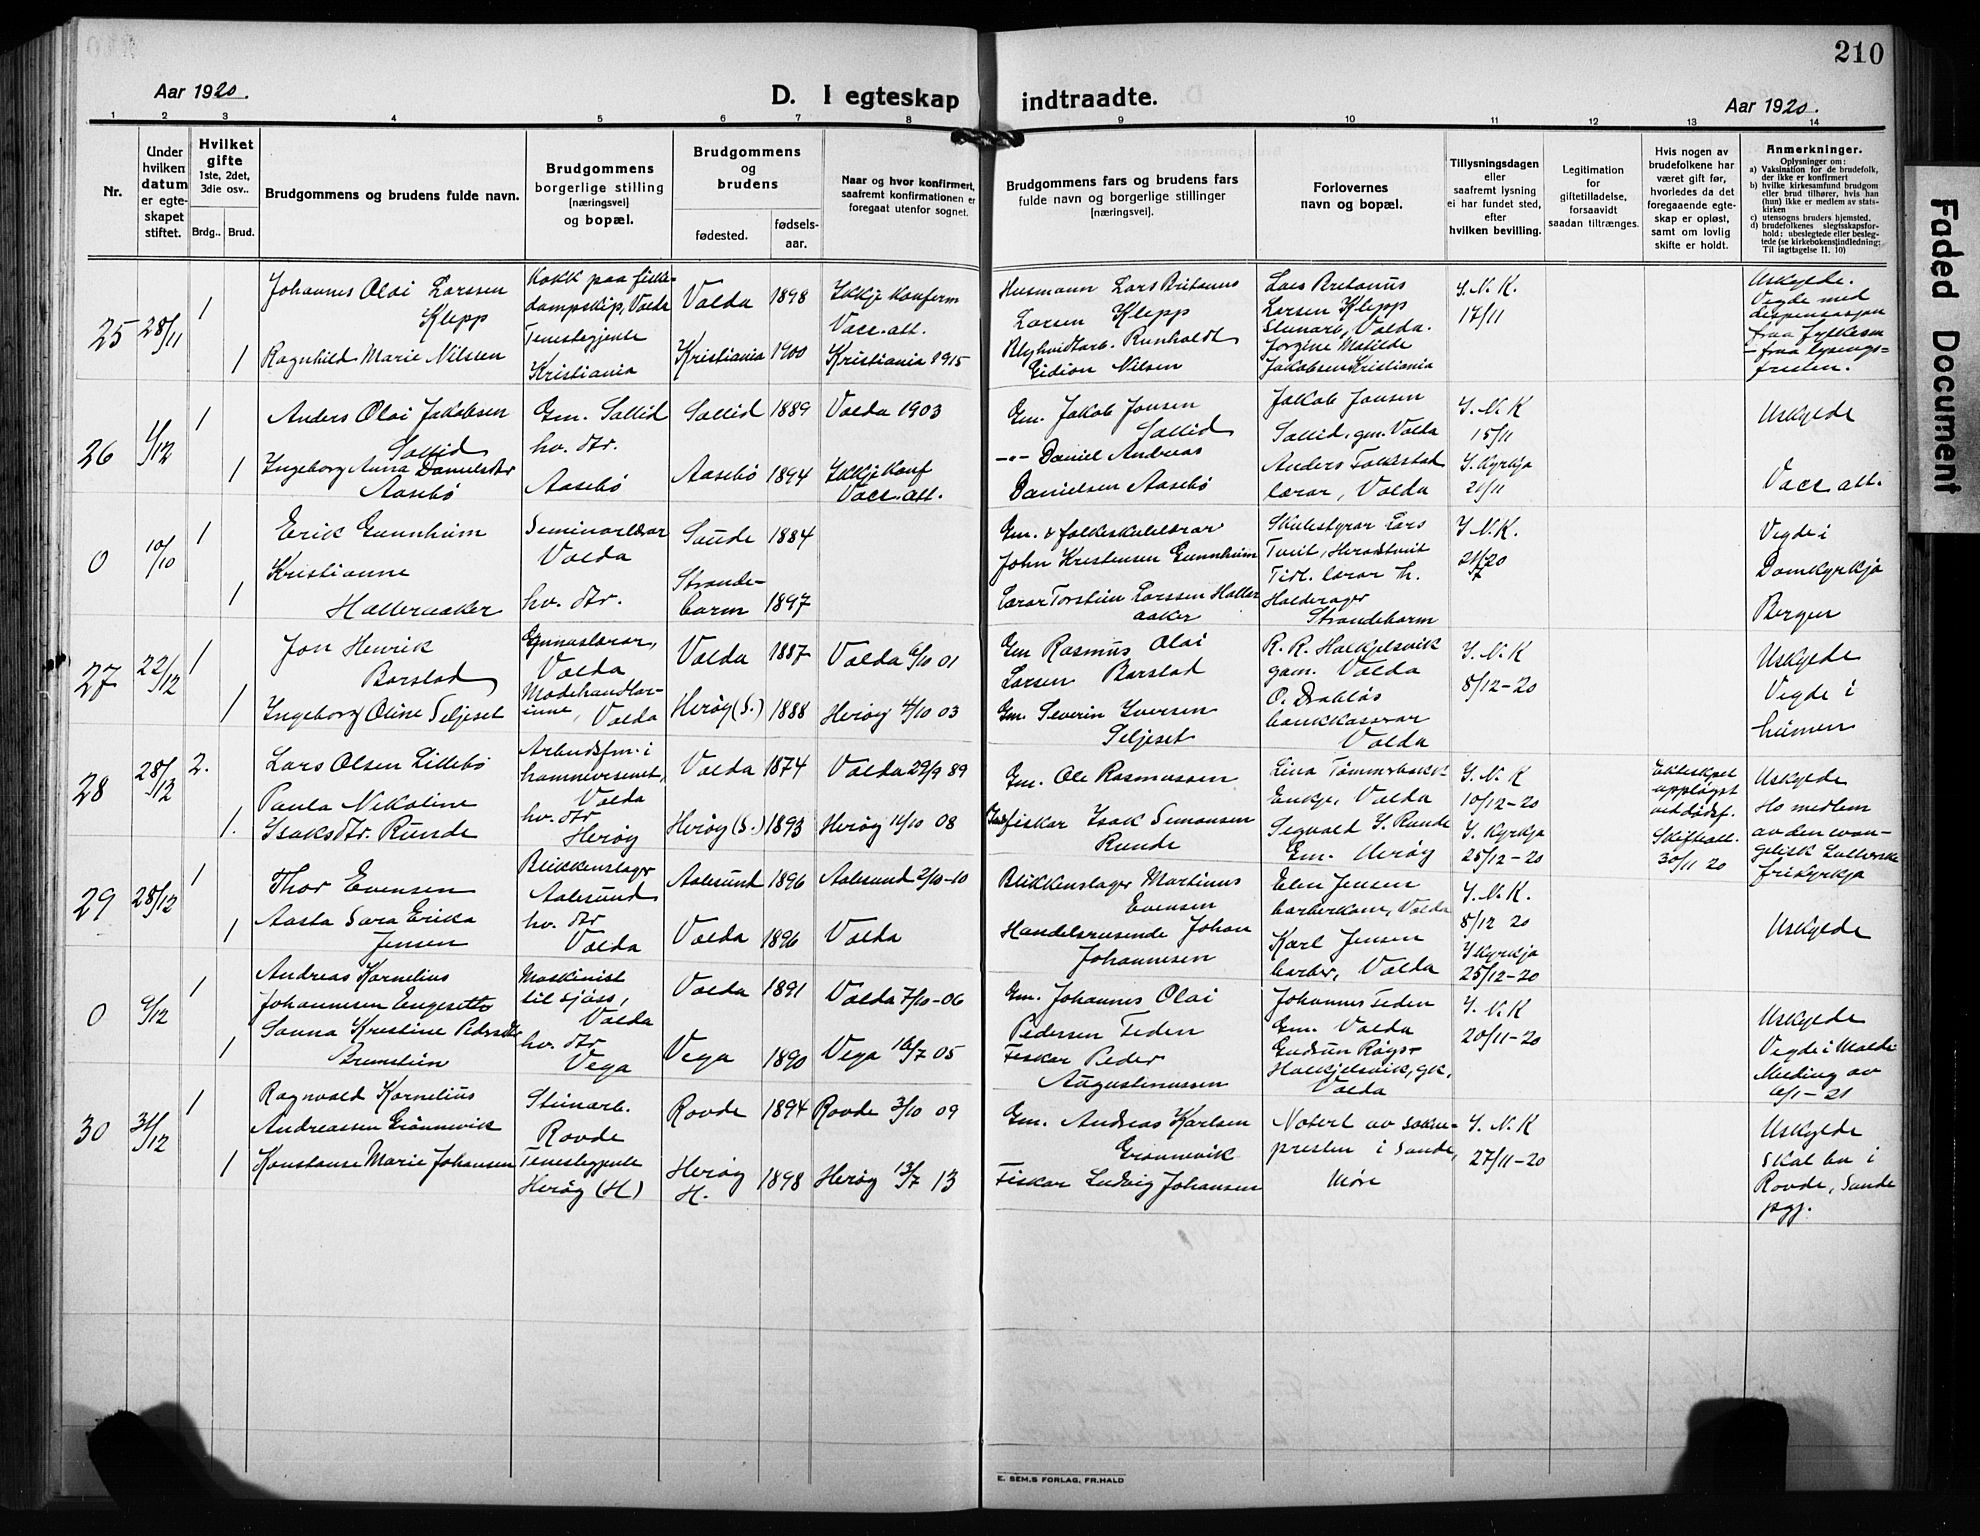 210
Aar 1920.
D. I egteskap indtraadte.
Aar 1920.
1 2 3 4 5 6 7 8 9 10 11 12 13 14
Nr.
Under hvilken datum er egteskapet stiftet.
Hvilket gifte 1ste, 2det, 3die osv..
Brdg.. Brud.
Brudgommens og brudens fulde navn.
Brudgommens borgerlige stilling [næringsvei] og bopæl.
Brudgommens og brudens
fødested.
fødselsaar.
Naar og hvor konfirmert, saafremt konfirmationen er foregaat utenfor sognet.
Brudgommens fars og brudens fars fulde navn og borgerlige stillinger [næringsvei].
Forlovernes navn og bopæl.
Tillysningsdagen eller saafremt lysning ei har fundet sted, efter hvilken bevilling.
Legitimation for giftetilladelse, forsaavidt saadan tiltrænges.
Hvis nogen av brudefolkene har været gift før, hvorledes da det foregaaende egteskap er opløst, samt om lovlig skifte er holdt.
Anmerkninger.
Oplysninger om:
a) Vaksination for de brudefolk, der ikke er konfirmert
b) hvilke kirkesamfund brudgom eller brud tilhører, hvis han (hun) ikke er medlem av statskirken
c) utensogns bruders hjemsted.
d) brudefolkenes slegtsskapsforhold: ubeslegtede eller beslegtede (se kirkebokens indledning: Til Iagttagelse II. 10)
25 28/11 1 Johannes Olai Larssen Klepp
Kokk paa fiskedampskip, Volda
Volda 1898 Ikkje konferm Vacc. att.
Husmann Lars Britanus Larsen Klepp
Lars Britanus Larsen Klepp Steinarb, Volda.
I. N. K. 17/11
Uskylde. Vigde med dispensasjon fraa fylkesm fraa lysingsfristen.
1 Ragnhild Marie Nilsen
Tenestegjente Kristiania
Kristiania 1900 Kristiania 1915
Blyhvidtarb. Runholdt Gidion Nilsen
Jorgine Matilde Jakobsen Kristiania
26 1/12 1 Anders Olai Jakobsen Sollid
Gm. Sollid
Sollid 1889 Volda 1903
Gm. Jakob Jonsen Sollid
Jakob Jonsen Sollid, gm. Volda
I. N. K 15/11
Uskylde
1 Ingeborg Anna Danielsdtr Aasebö
hv. dtr. Aasebö
Aasebö 1894 Ikkje konf Vacc. att.
-"- Daniel Andreas Danielsen Aasebö
Anders Folkestad lærar, Volda
I. Kyrkja 21/11
Vacc att.
0 10/10 1 Erik Gunnheim
Seminarlærar Volda
Saude 1884
Gm. & folkeskulelærar John Kristensen Gunnheim
Skulestyrar Lars Tveit, Heradtveit
I. N. K. 21/7 20
Vigde i Domkyrkja Bergen
1 Kristianne Halleraaker
hv. dtr.
Strandebarm 1897
Lærar Torstein Larssen Halleraaker
Tidl. lærar H. Halderager Strandebarm
27 22/12 1 Jon Henrik Barstad
Gymnaslærar, Volda
Volda 1887 Volda 6/10 01
Gm Rasmus Olai Larsen Barstad
R. R. Halkjelsvik gam. Volda
I. N. K 8/12-20
Uskylde Vigde i heimen
1 Ingeborg Oline Seljeset
Motehandlarinne, Volda
Herøy (S.) 1888 Herøy 4/10 03
Gm. Severin Iversen Seljeset
O. Drabløs bankkasserar Volda
28 28/12 2. Lars Olsen Lillebö
Arbeidsfm. i hamnevesenet, Volda
Volda 1874 Volda 29/9 89
Gm. Ole Rasmussen
Lina Tømmerbakk Enkje, Volda
I. N. K 10/12-20
Ekteskapet upployst ved dödsf. Skifteatt. 30/11 20
Uskylde Ho medlem av den evangelisk Lutherske frikyrkja
1. Paula Nikoline Isaksdtr. Runde
hv. dtr Herøy
Herøy (S.) 1893 Herøy 11/10 08
fiskar Isak Simonsen Runde
Segvald I. Runde Gm. Herøy
I. Kyrkja 25/12-20
29 28/12 1 Thor Evensen
Blikkenslager Aalesund
Aalesund 1896 Aalesund 2/10-10
Blikkenslager Martinus Evensen
Elen Jensen barberkone, Volda
I. N. K. 8/12 20
1 Aasta Sara Erika Jensen
hv. dtr Volda
Volda 1896 Volda
Handelsreisende Johan Johannesen
Karl Jensen barber, Volda
I Kyrkja 25/12-20
Uskylde
0 6/12 1 Andreas Kornelius Johannesen Engesette
Maskinist til sjöss, Volda
Volda 1891 Volda 7/10-06
Gm. Johannes Olai Pedersen Feden
Johannes Feden Gm. Volda
I. N. K 20/11-20
Uskylde Vigde i Molde Melding av 6/1-21
1 Sanna Kristine Pedersdtr Brunstein
hv. dtr Vega
Vega 1890 Vega 16/7 05
Fiskar Peder Augustinussen
Gudrun Røys-Halkjelsvik, gk, Volda
30 31/12 1 Ragnvald Kornelius Andreassen Grönnevik
Steinarb. Rovde
Rovde 1894 Rovde 3/10 09
Gm. Andreas Karlsen Grönnevik
Notert av soknepresten i Sande, Møre
I. N. K 27/11-20
Uskylde Skal bu i Rovde, Sande pgj.
1 Konstanse Marie Johansen
Tenestegjente Herøy (H)
Herøy H. 1898 Herøy 13/7 13
Fiskar Ludvig Johansen
E. SEM.S FORLAG, FR.HALD
Faded Document